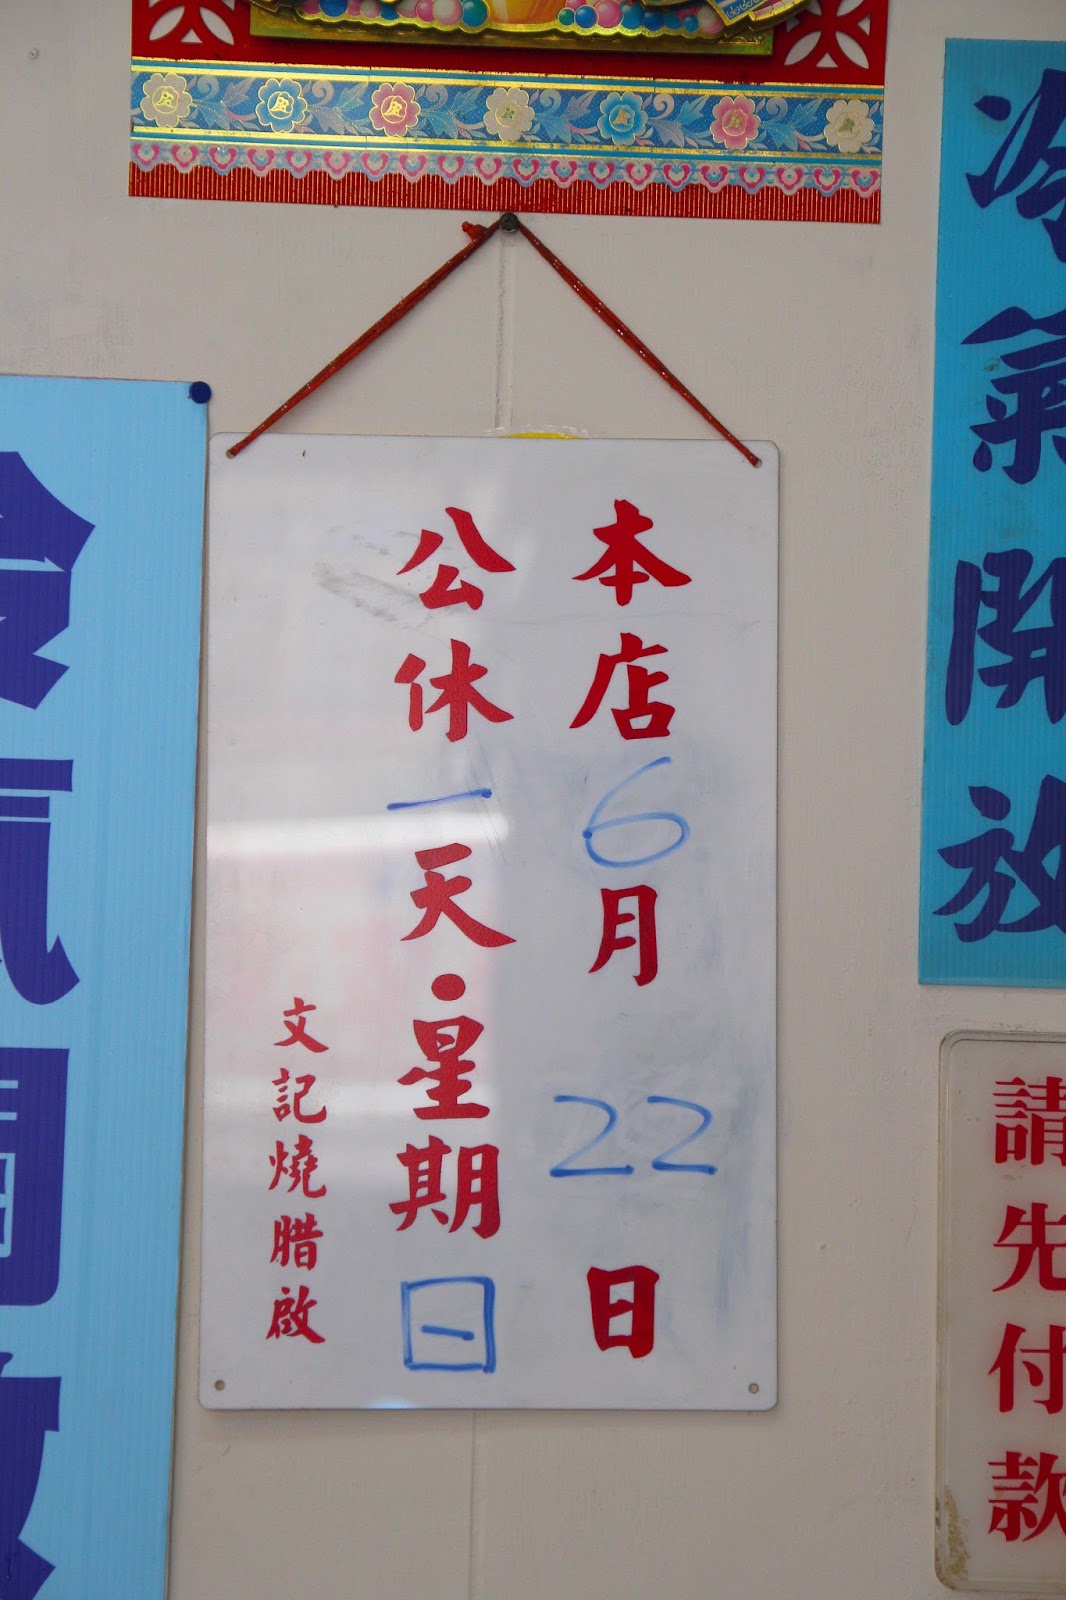 本店6月22日
公休一天·星期日
文記燒腊啟
冷氣開放
冷氣開放
請先付款